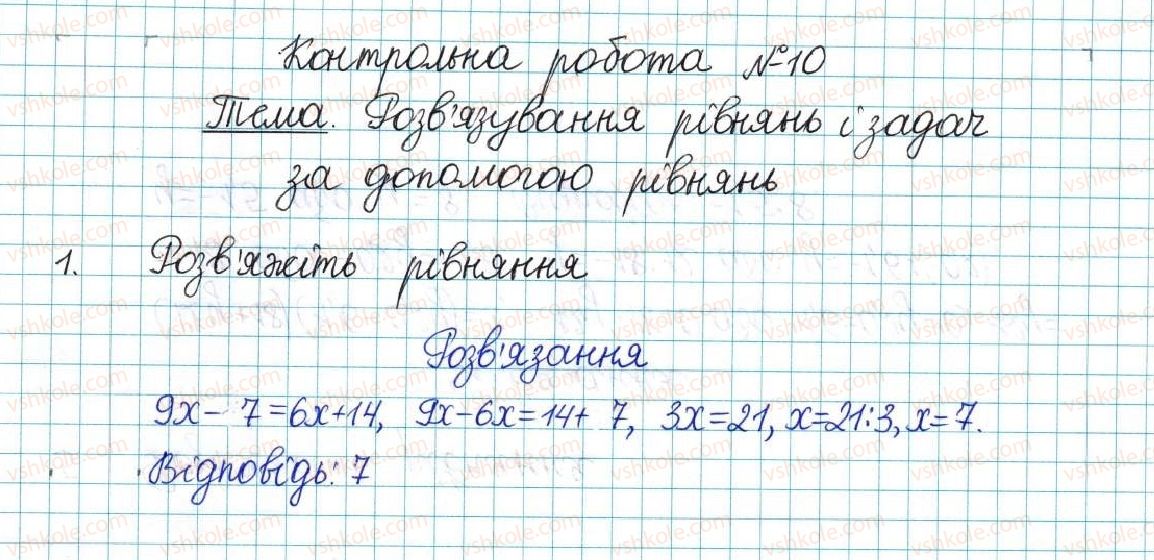 Контрольна робота №10
Тема. Розв'язування рівнянь і задач
за допомогою рівнянь
1. Розв'яжіть рівняння
Розв'язання
9x - 7 = 6x + 14, 9x - 6x = 14 + 7, 3x = 21, x = 21 : 3, x = 7.
Відповідь: 7